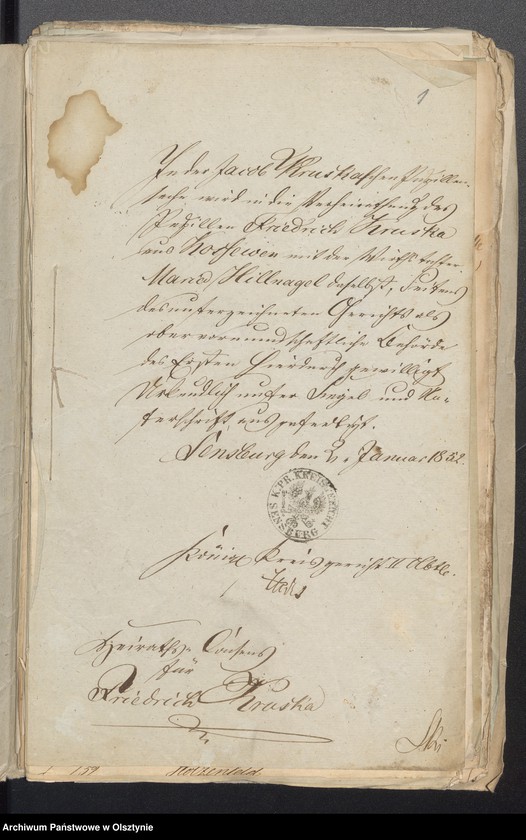 1
In der Jacob Kruskaschen Pupillen-
sache wird in die Verheirathung des
Pupillen Friedrich Kruska
aus mit der Wirthstochter
Maria Hillnagel daselbst, Seitens
des unterzeichneten Gerichts als
obervormundschaftliche Behörde
des Ersten hierdurch gewilligt
Urkundlich unter Siegel und Un-
terschrift ausgefertigt.
Sensburg den 2. Januar 1852.
K. PR. KREIS-GERICHT
SENSBURG
Königl Kreisgericht II Abtl.
Heiraths-Consens
für
Friedrich Kruska
159
Archiwum Państwowe w Olsztynie